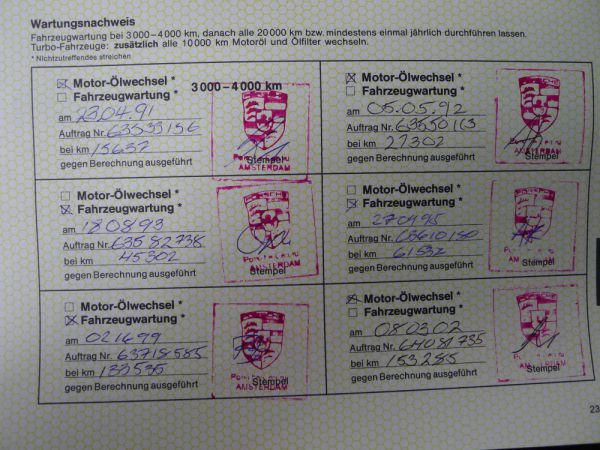 Wartungsnachweis
Fahrzeugwartung bei 3000–4000 km, danach alle 20 000 km bzw. mindestens einmal jährlich durchführen lassen.
Turbo-Fahrzeuge: zusätzlich alle 10 000 km Motoröl und Ölfilter wechseln.
* Nichtzutreffendes streichen
Motor-Ölwechsel * 3000–4000 km
Fahrzeugwartung *
am 23.04.91
Auftrag Nr. 63533156
bei km 15637
gegen Berechnung ausgeführt
Stempel
AMSTERDAM
Motor-Ölwechsel *
Fahrzeugwartung *
am 05.05.92
Auftrag Nr. 63550163
bei km 27302
gegen Berechnung ausgeführt
Stempel
AMSTERDAM
Motor-Ölwechsel *
Fahrzeugwartung *
am 180893
Auftrag Nr. 63582738
bei km 45302
gegen Berechnung ausgeführt
Stempel
AMSTERDAM
Motor-Ölwechsel *
Fahrzeugwartung *
am 270495
Auftrag Nr. 63610180
bei km 61532
gegen Berechnung ausgeführt
Stempel
AMSTERDAM
Motor-Ölwechsel *
Fahrzeugwartung *
am 021699
Auftrag Nr. 63718585
bei km 133535
gegen Berechnung ausgeführt
Stempel
AMSTERDAM
Motor-Ölwechsel *
Fahrzeugwartung *
am 080302
Auftrag Nr. 64081735
bei km 153285
gegen Berechnung ausgeführt
Stempel
AMSTERDAM
23